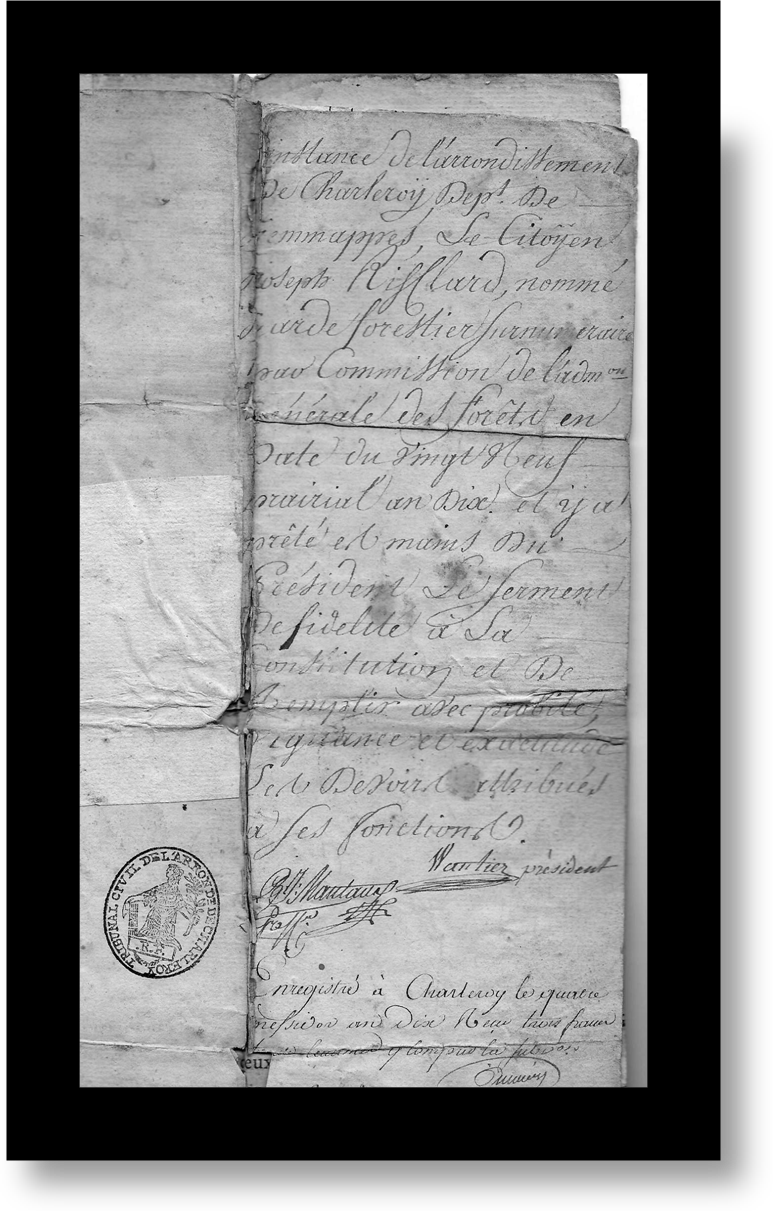 instance de l'arrondissement
De Charleroÿ Dept. De
Jemmappes, Le Citoÿen
Joseph Risselard, nommé
Garde forestier surnumeraire
par Commission de l'admon
Générale des forêts en
Date du vingt Neuf
prairial an Dix. et y a
prêté es mains Du
Président Le serment
De fidelité à La
Constitution et De
Remplir avec probité,
vigilance et exactitude
Les Devoirs attribués
à ses fonctions.
Wautier président
TRIBUNAL CIVIL DE L'ARRONDT DE CHARLEROY
R.F.
Enregistré à Charleroy le quatre
messidor an dix Reçu trois francs
y compris la
eux